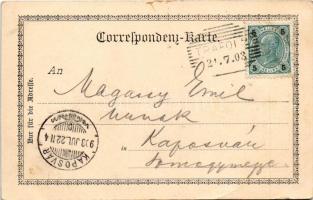 Correspondenz-Karte.
21.7.03
5 5
An
Magassy Emil
urnak
in Kaposvár
Somogymegye
Nur für die Adresse.
KAPOSVÁR
903 JUL. 22